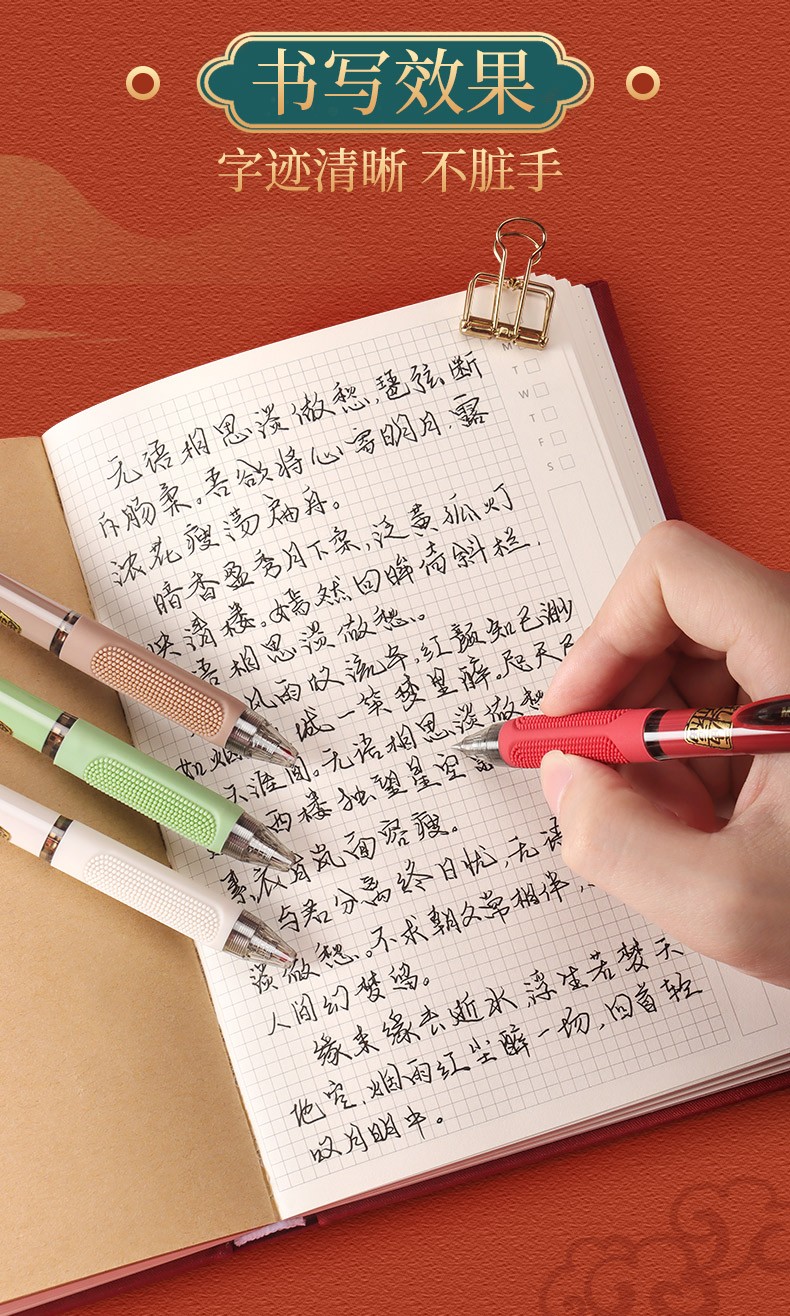 书写效果
字迹清晰 不脏手
M
T
W
T
F
S
无语相思淡做愁，琶弦断
斥肠柔。吾欲将心寄明月，露
浓花瘦荡扁舟。
暗香盈秀月下柔，泛黄孤灯
映清楼。嫣然回眸倚斜栏，
语相思淡做愁。
风雨叹流年，红颜知己渺
如烟 城一笑梦里醉。咫尺
天涯间。无语相思淡做愁
西楼独望星空
素衣有岚面容瘦。
与君分离终日忧，无语
淡做愁。不求朝夕常相伴，
人间幻梦留。
缘来缘去逝水，浮生若梦天
地空，烟雨红尘醉一场，回首轻
叹月明中。